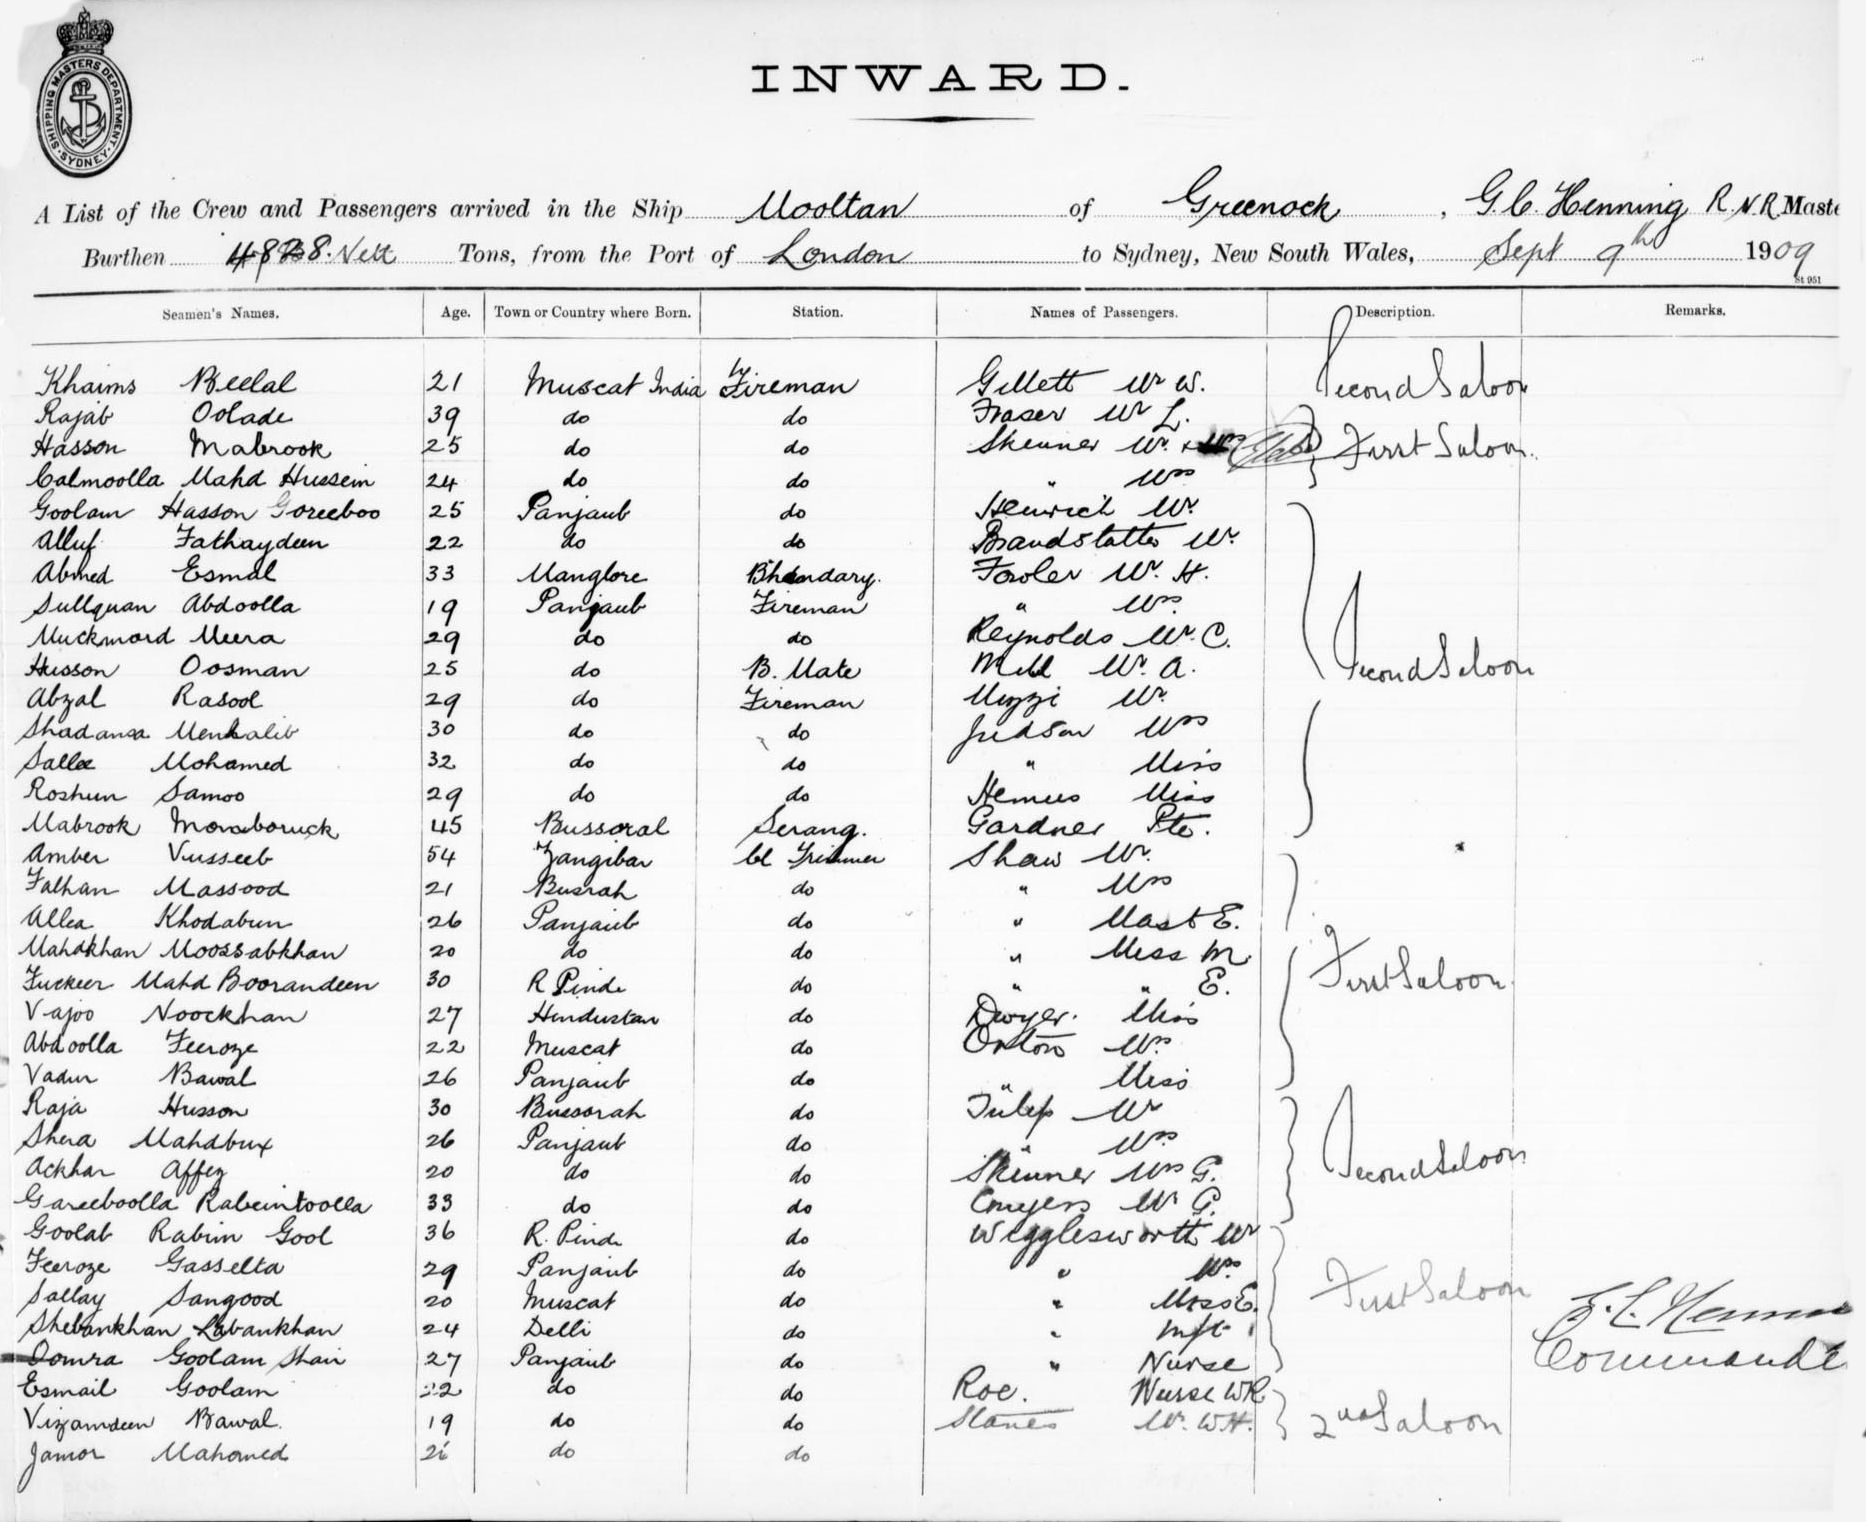 SHIPPING MASTERS DEPARTMENT · SYDNEY ·
INWARD.
A List of the Crew and Passengers arrived in the Ship Mooltan of Greenock, G.C. Henning R.N.R. Maste
Burthen Nett Tons, from the Port of London to Sydney, New South Wales, Sept 9th 1909
St 951
Seamen's Names. Age. Town or Country where Born. Station. Names of Passengers. Description. Remarks.
Khaims Beelal 21 Muscat India Fireman Gillett Mr W. Second Saloon
Rajab Oolade 39 do do Fraser Mr L.
Hasson Mabrook 25 do do Skinner Mr. First Saloon.
Calmoolla Mahd Hussein 24 do do " Mrs
Goolam Hasson Goreeboo 25 Panjaub do Heinrich Mr.
Alluf Fathaydeen 22 do do Brandstatter Mr.
Ahmed Esmal 33 Manglore Bhandary. Fowler Mr. H.
Sullquan Abdoolla 19 Panjaub Fireman " Mrs.
Muckmord Meera 29 do do Reynolds Mr. C.
Husson Oosman 25 do B. Mate Mill Mr. A. Second Saloon
Abzal Rasool 29 do Fireman Muzzi Mr.
Shadansa 30 do do Judson Mrs
Sallee Mohamed 32 do do " Miss
Roshun Samoo 29 do do Hemus Miss
Mabrook 45 Bussoral Serang. Gardner Pte.
Amber Vusseeb 54 Zangibar Cl Trimmer Shaw Mr.
Falhan Massood 21 Busrah do " Mrs
Allea Khodabun 26 Panjaub do " Mast E.
Mahdkhan Moossabkhan 20 do do " Miss M.
Fuckeer Mahd Boorandeen 30 R Pinde do " " E. First Saloon.
Vajoo Noockhan 27 Hindustan do Dwyer. Miss
Abdoolla Feeroze 22 Muscat do Orton Mrs.
Vadur Bawal 26 Panjaub do " Miss
Raja Husson 30 Bussorah do Tulep Mr
Shera Mahdbux 26 Panjaub do " Mrs Second Saloon
Ackhar Affez 20 do do Skinner Mrs G.
Gareeboolla Rabeintoolla 33 do do Conyers Mr G.
Goolab Rabim Gool 36 R. Pinde do Wigglesworth Mr
Feeroze Gasselta 29 Panjaub do " Mrs
Sallay Sangood 20 Muscat do " Miss E. First Saloon
Shebankhan Labankhan 24 Delli do " Inft.
Oomra Goolam Shair 27 Panjaub do " Nurse Commande
Esmail Goolam 22 do do Roe. Nurse WR
Vizamdeen Bawal. 19 do do Stanes Mr. W.H. 2nd Saloon
Jamor Mahomed do do